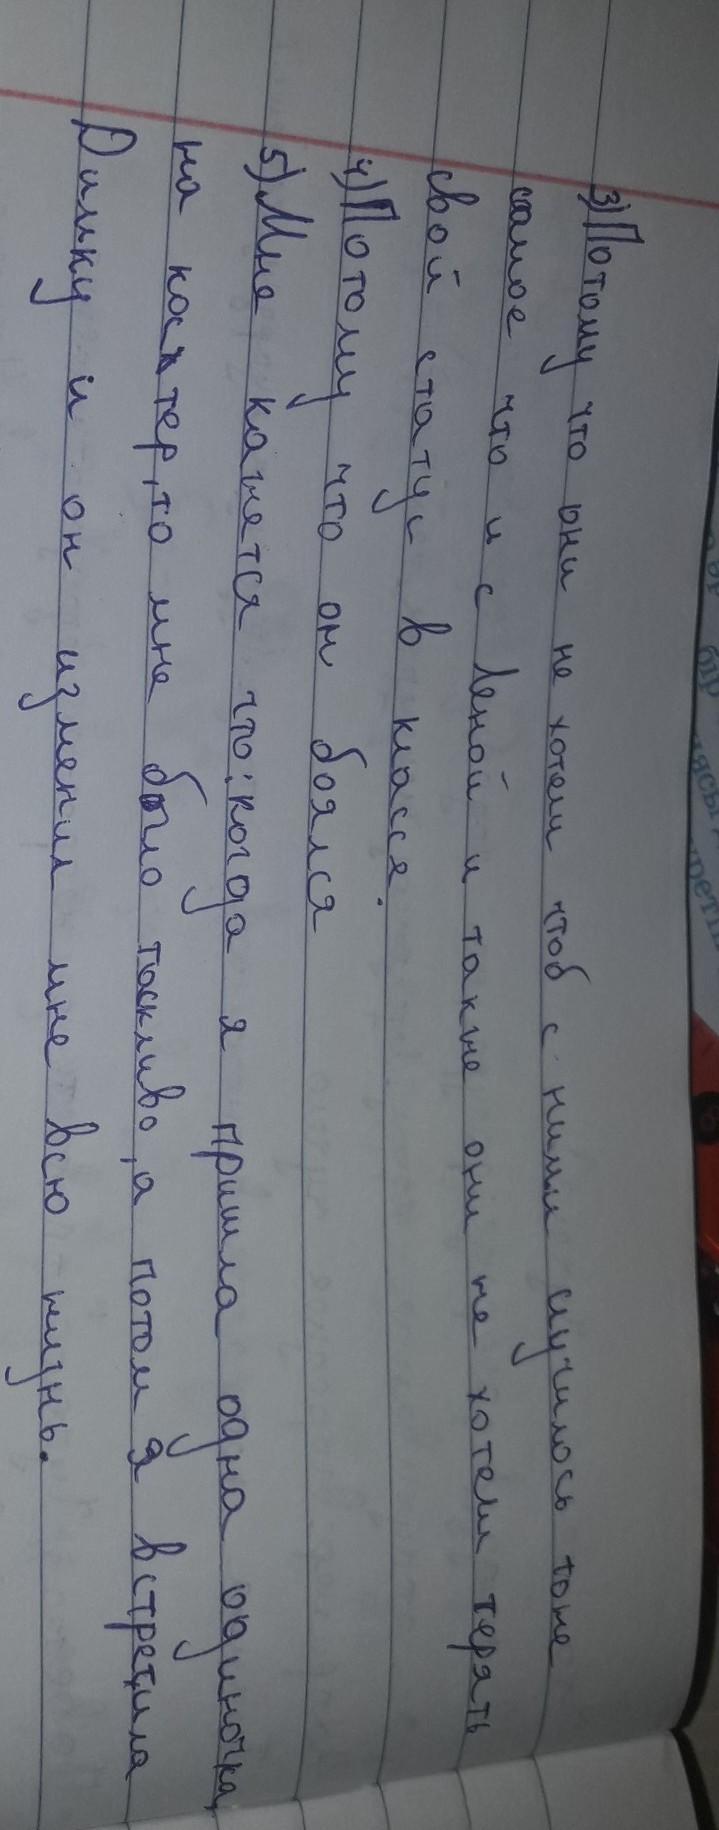 3) Потому что они не хотели чтоб с ними случилось тоже
самое что и с Леной и также они не хотели терять
свой статус в классе.
4) Потому что он боялся
5) Мне кажется что: когда я пришла одна одиночка,
на костер, то мне было таскливо, а потом я встретила
Димку и он изменил мне всю жизнь.